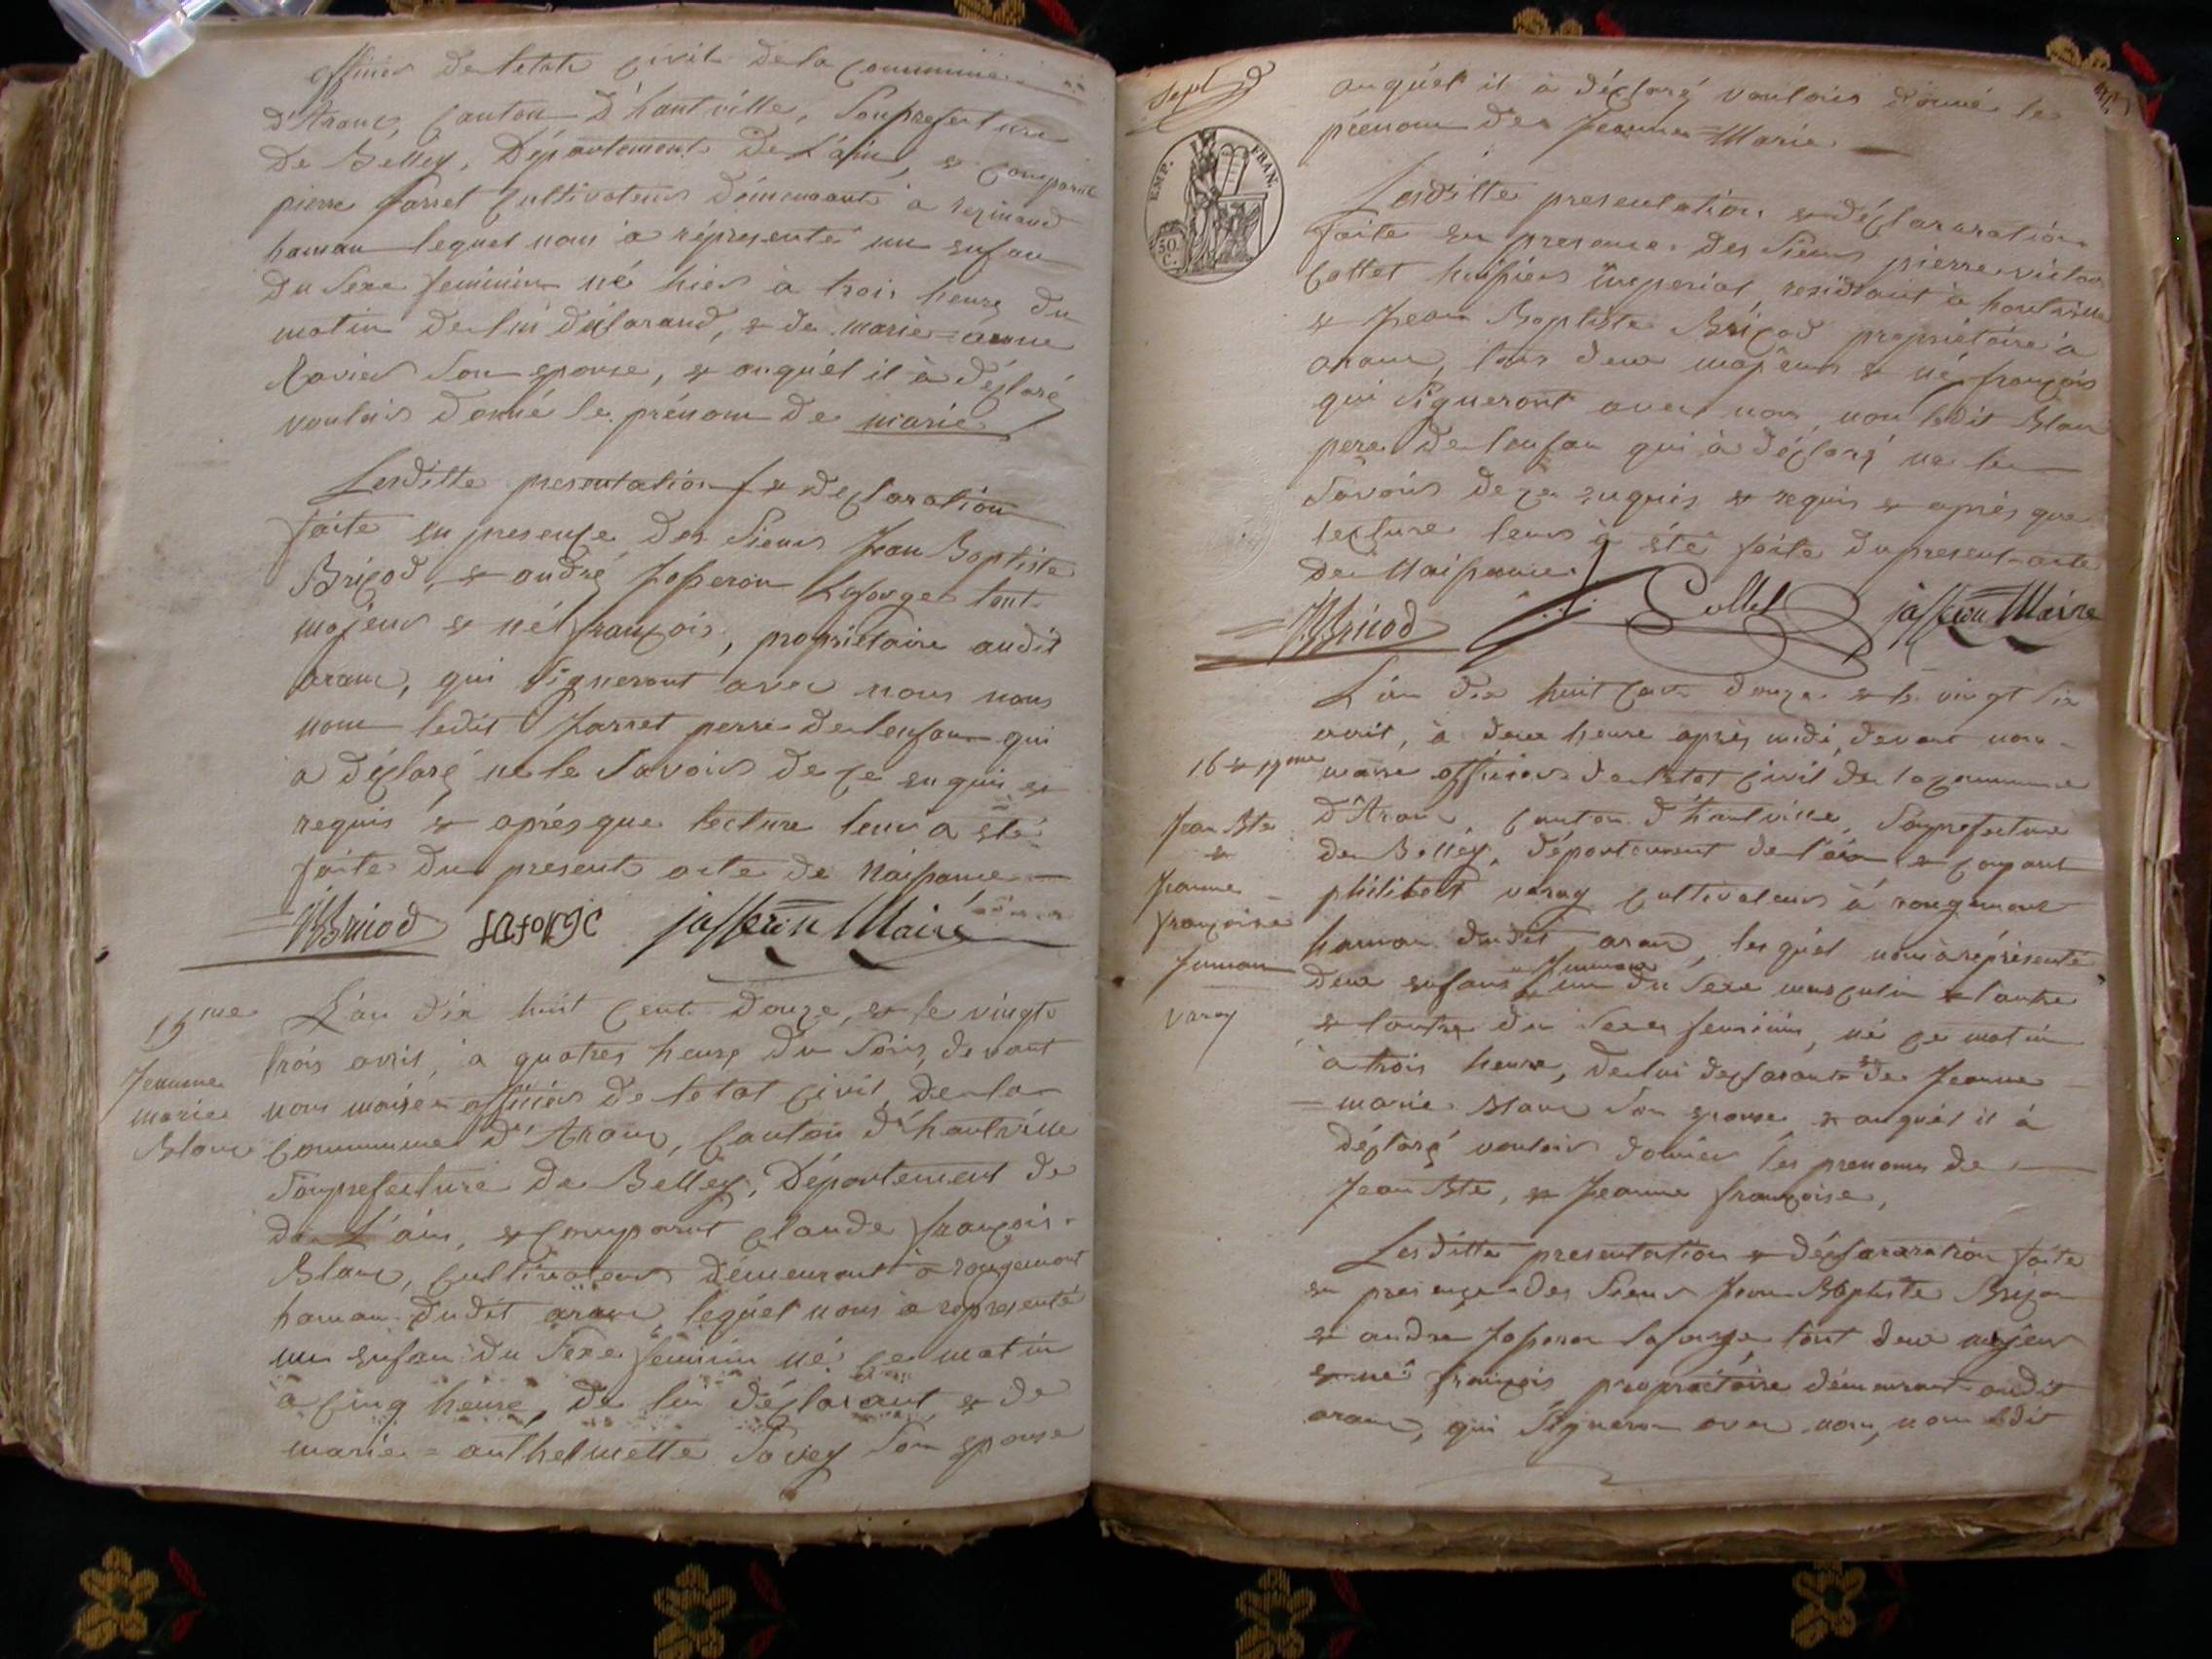 officier de letate civil de la commune
d'Aranc, canton d'hautville, Souprefecture
De Belley, Département De L'ain, & comparut
pierre Jarret cultivateur démeurant à
hamau lequel nous a répresenté un enfan
Du Sexe feminin né hier à trois heures du
matin de lui déclarand, & de marie=anne
Ravier Son epouse, & auquél il à déclaré
vouloir donné le prénom de marie
Lesditte presentation & declaration
faite en presence des Sieurs Jean Baptiste
Bricod, & andré Josseron Laforge tout
majeur & né françois, propriétaire audit
aranc, qui Signeront avec nous nous
nom ledit Jarret perre de lenfan qui
a déclaré ne le Savoir de ce enquis &
requis & aprés que lecture leur a été
faite du present acte de Naissance
JBBricod laforge josseron Maire
15me L'an dix huit cent douze, & le vingt
trois avril, à quatres heure du Soir, devant
Jeanne
marie
Blanc
nous maire officier De letat civil, de la
Commune d'Aranc, canton d'hautville
Souprefecture de Belley, Département de
de L'ain, & comparut claude françois
Blanc, cultivateur démeurant à rougemont
hamau dudit aranc, lequél nous à representé
un enfan du Sexe feminin né ce matin
à cinq heure, de lui déclarant & de
marie=anthelmette Savey Son epouse
Sept
auquél il à déclaré vouloir donné le
prénom de Jeanne=Marie
EMP. FRAN.
50.
C.
Lesditte presentation & déclararation
faite en presence des Sieurs pierre victor
Collet huissier imperial, residant à hautville
& Jean Baptiste Bricod propriétaire à
aranc, tous deux majeurs & né françois
qui Signeront avec nous, non ledit Blanc
pere de lenfan qui à déclaré ne le
Savoir de ce enquis & requis & aprés que
lecture leur à été faite du present acte
De Naissance
JBBricod Collet josseron Maire
L'an dix huit cent douze & le vingt Six
avril, à deux heure aprés midi, devant nous
16 & 17me
Jean Bte
&
Jeanne
françoise
Jumau
varey
maire officier de letat civil de la commune
d'Aranc canton d'hautville, Souprefecture
de Belley, département de l'ain & comparut
philibert varey cultivateur à rougemont
hamau dudit aranc, lequél nous à répresenté
deux enfans jumeau un du Sexe masculin & l'autre
& lautre du Sexe feminin, né ce matin
à trois heure, de lui declarant & de Jeanne
=marie Blanc Son epouse & auquél il à
déclaré vouloir donner les prenoms de
Jean Bte, & Jeanne françoise,
Lesditte presentation & déclararation faite
en presence des Sieurs Jean Baptiste Bricod
& andre Josseron laforge, tout deux majeur
& né françois propriétaire démeurant audit
aranc, qui Signeron avec nous, nom ledit